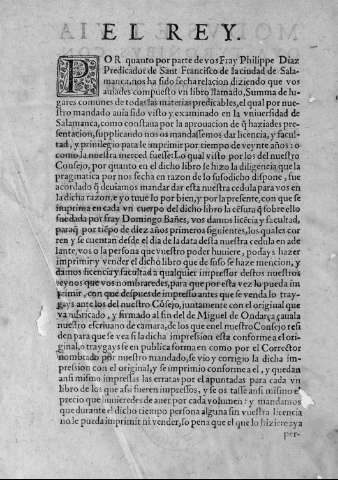 EL REY.
POR quanto por parte de vos Fray Philippe Diaz
Predicador de Sant Francisco de la ciudad de Sala-
manca, nos ha sido fecha relacion diziendo que vos
auiades compuesto vn libro llamado, Summa de lu-
gares comunes de todas las materias predicables, el qual por nue-
stro mandado auia sido visto y examinado en la vniuersidad de
Salamanca, como constaua por la aprouacion de q̃ haziades pre-
sentacion, supplicando nos os mandassemos dar licencia, y facul-
tad, y priuilegio para le imprimir por tiempo de veynte años: o
como la nuestra merced fuesse. Lo qual visto por los del nuestro
Cõsejo, por quanto en el dicho libro se hizo la diligencia que la
pragmatica por nos fecha en razon de lo susodicho dispone, fue
acordado q̃ deuiamos mandar dar esta nuestra cedula para vos en
la dicha razon, e yo tuue lo por bien, y por la presente, con que se
imprima en cada vn cuerpo del dicho libro la cẽsura q̃ sobre ello
fue dada por fray Domingo Bañes, vos damos licẽcia y facultad,
paraq̃ por tiẽpo de diez años primeros siguientes, los quales cor
ren y se cuentan desde el dia de la data desta nuestra cedula en ade
lante, vos o la persona que vuestro poder huuiere, podays hazer
imprimir y vender el dicho libro que de suso se haze mencion, y
damos licencia y facultad a qualquier impressor destos nuestros
reynos que vos nombraredes, para que por esta vez lo pueda im
primir, con que despues de impresso antes que se venda lo tray-
gays ante los del nuestro Cõsejo, juntamente con el original que
va rubricado, y firmado al fin del de Miguel de Ondarça çauala
nuestro escriuano de camara, de los que en el nuestro Consejo resi
den para que se vea si la dicha impression esta conforme a el ori-
ginal, o traygays fe en publica forma en como por el Corrector
nombrado por nuestro mandado, se vio y corrigio la dicha im-
pression con el original, y se imprimio conforme a el, y quedan
ansi mismo impressas las erratas por el apuntadas para cada vn
libro de los que assi fueren impressos, y se os tasse ansi mismo e
precio que huuieredes de auer por cada volumen: y mandamos
que durante el dicho tiempo persona alguna sin vuestra licencia
no le pueda imprimir ni vender, so pena que el que lo hiziere aya
per-